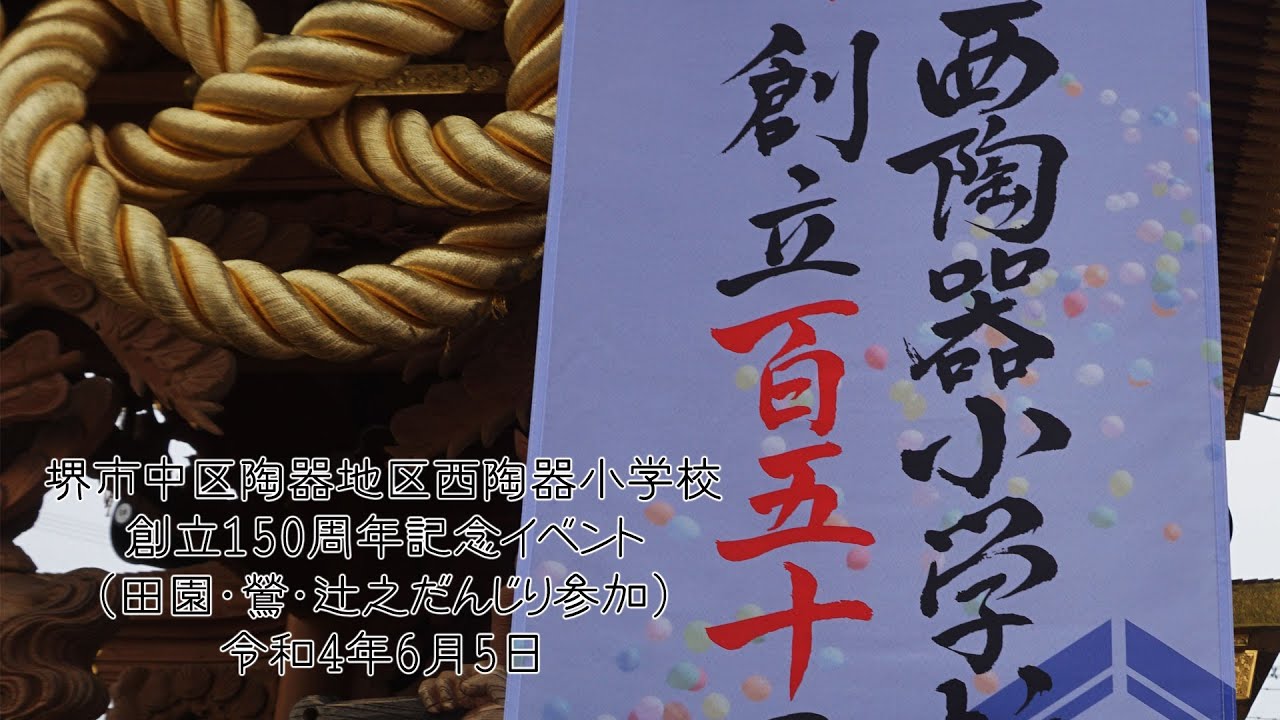 西陶器小学校
創立百五十
堺市中区陶器地区西陶器小学校
創立150周年記念イベント
(田園・鶯・辻之だんじり参加)
令和4年6月5日